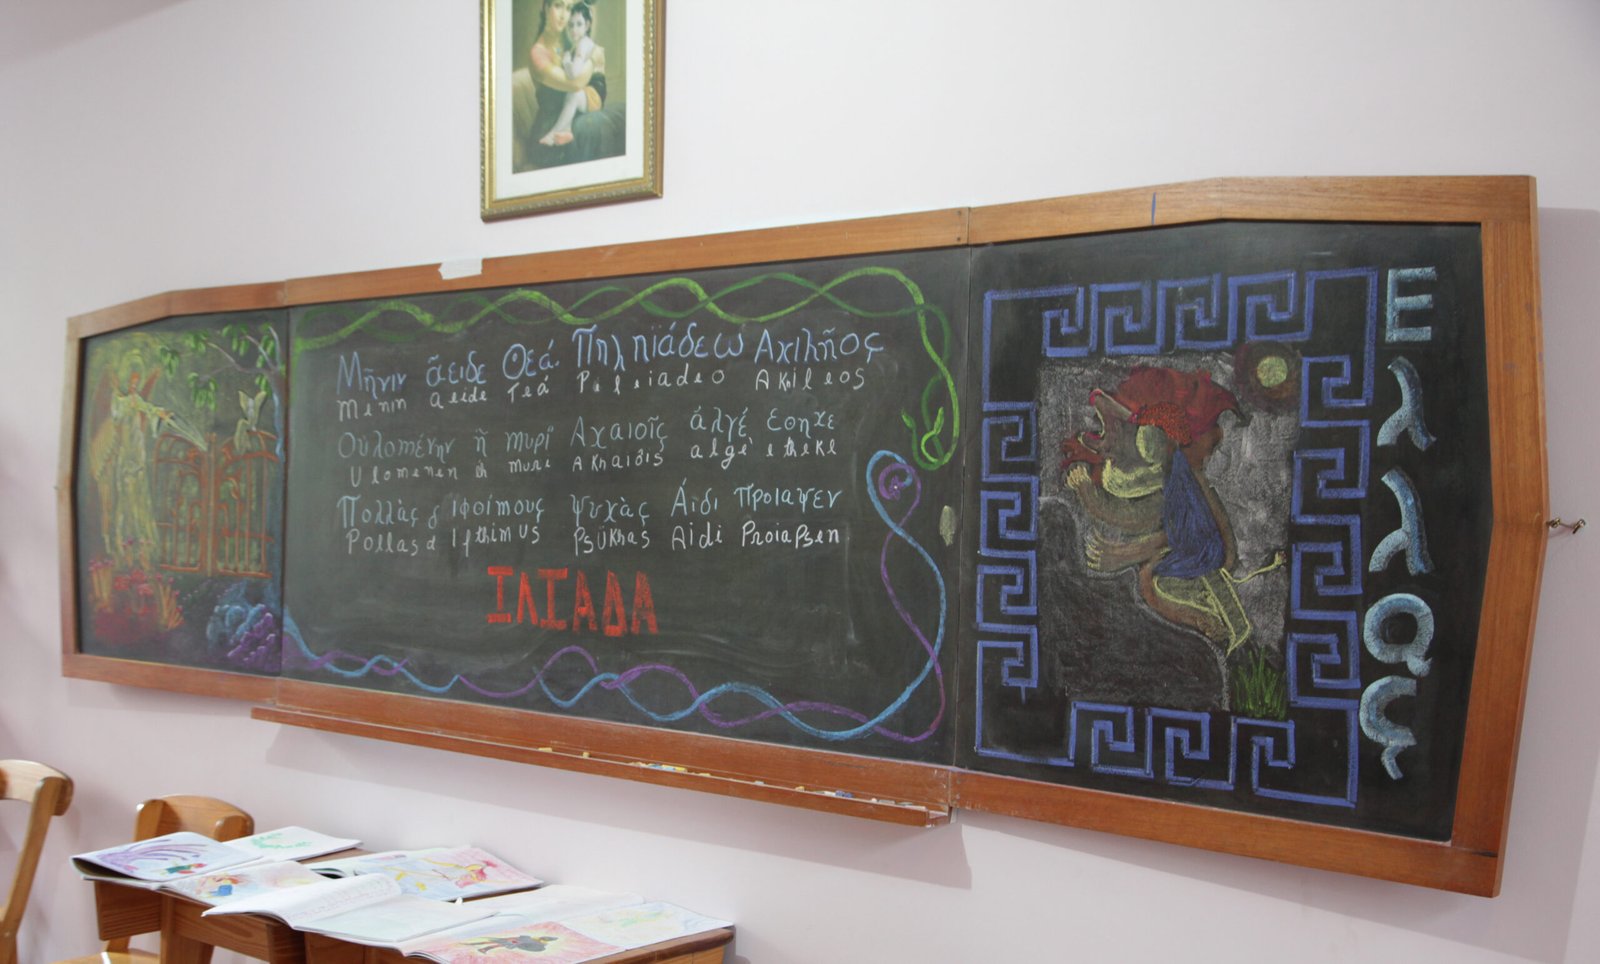 Μῆνιν ἄειδε Θεά Πηληϊάδεω Αχιλῆος
Menin aeide Teá Peleiadeo Akhileos
Οὐλομένην ἣ μυρί Αχαιοῖς άλγέ εθηκε
Ulomenen eh muri Akhaiois algè etheke
Πολλὰς δ ιφοίμους ψυχὰς Άιδι προιαψεν
Pollas d Ifthimus Psükhas Aidi Proiapsen
ΙΛΙΑΔΑ
Ελλας